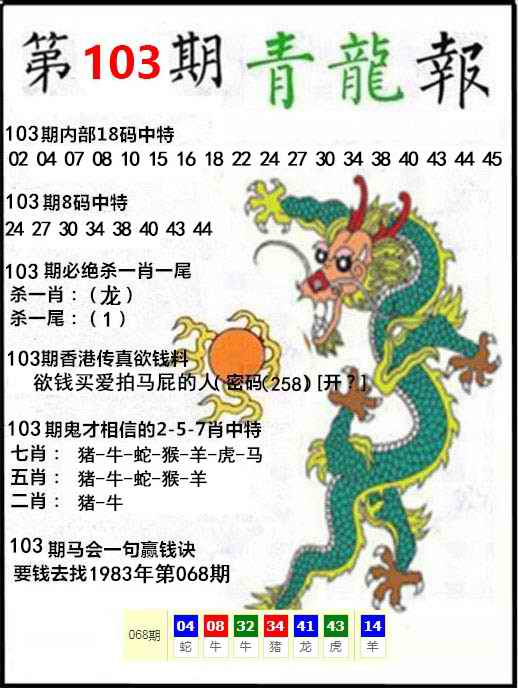 第103期青龍報
103期内部18码中特
02 04 07 08 10 15 16 18 22 24 27 30 34 38 40 43 44 45
103期8码中特
24 27 30 34 38 40 43 44
103期必绝杀一肖一尾
杀一肖：（龙）
杀一尾：（1）
103期香港传真欲钱料
欲钱买爱拍马屁的人(密码(258)[开?]
103期鬼才相信的2-5-7肖中特
七肖： 猪-牛-蛇-猴-羊-虎-马
五肖： 猪-牛-蛇-猴-羊
二肖： 猪-牛
103期马会一句赢钱诀
要钱去找1983年第068期
068期 04 08 32 34 41 43 14
蛇 牛 牛 猪 龙 虎 羊